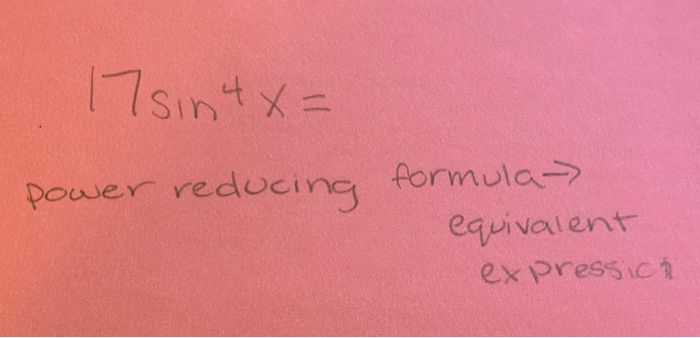 17 sin⁴ x =
power reducing formula →
equivalent
expression